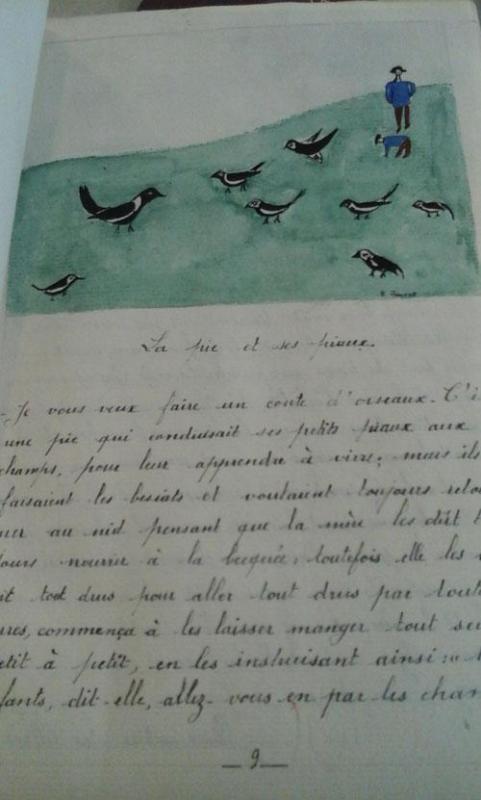 La pie et ses piaux.
- Je vous veux faire un conte d'oiseaux. C'
une pie qui conduisait ses petits piaux aux
champs, pour leur apprendre à vivre; mais ils
faisaient les besiats et voulaient toujours retou
ner au nid pensant que la mère les dût t
jours nourrir à la bequée; toutefois elle les
it tout drus pour aller tout drus par toute
ures, commença à les laisser manger tout seu
etit à petit, en les instruisant ainsi: "
fants, dit-elle, allez-vous en par les cham
— 9 —